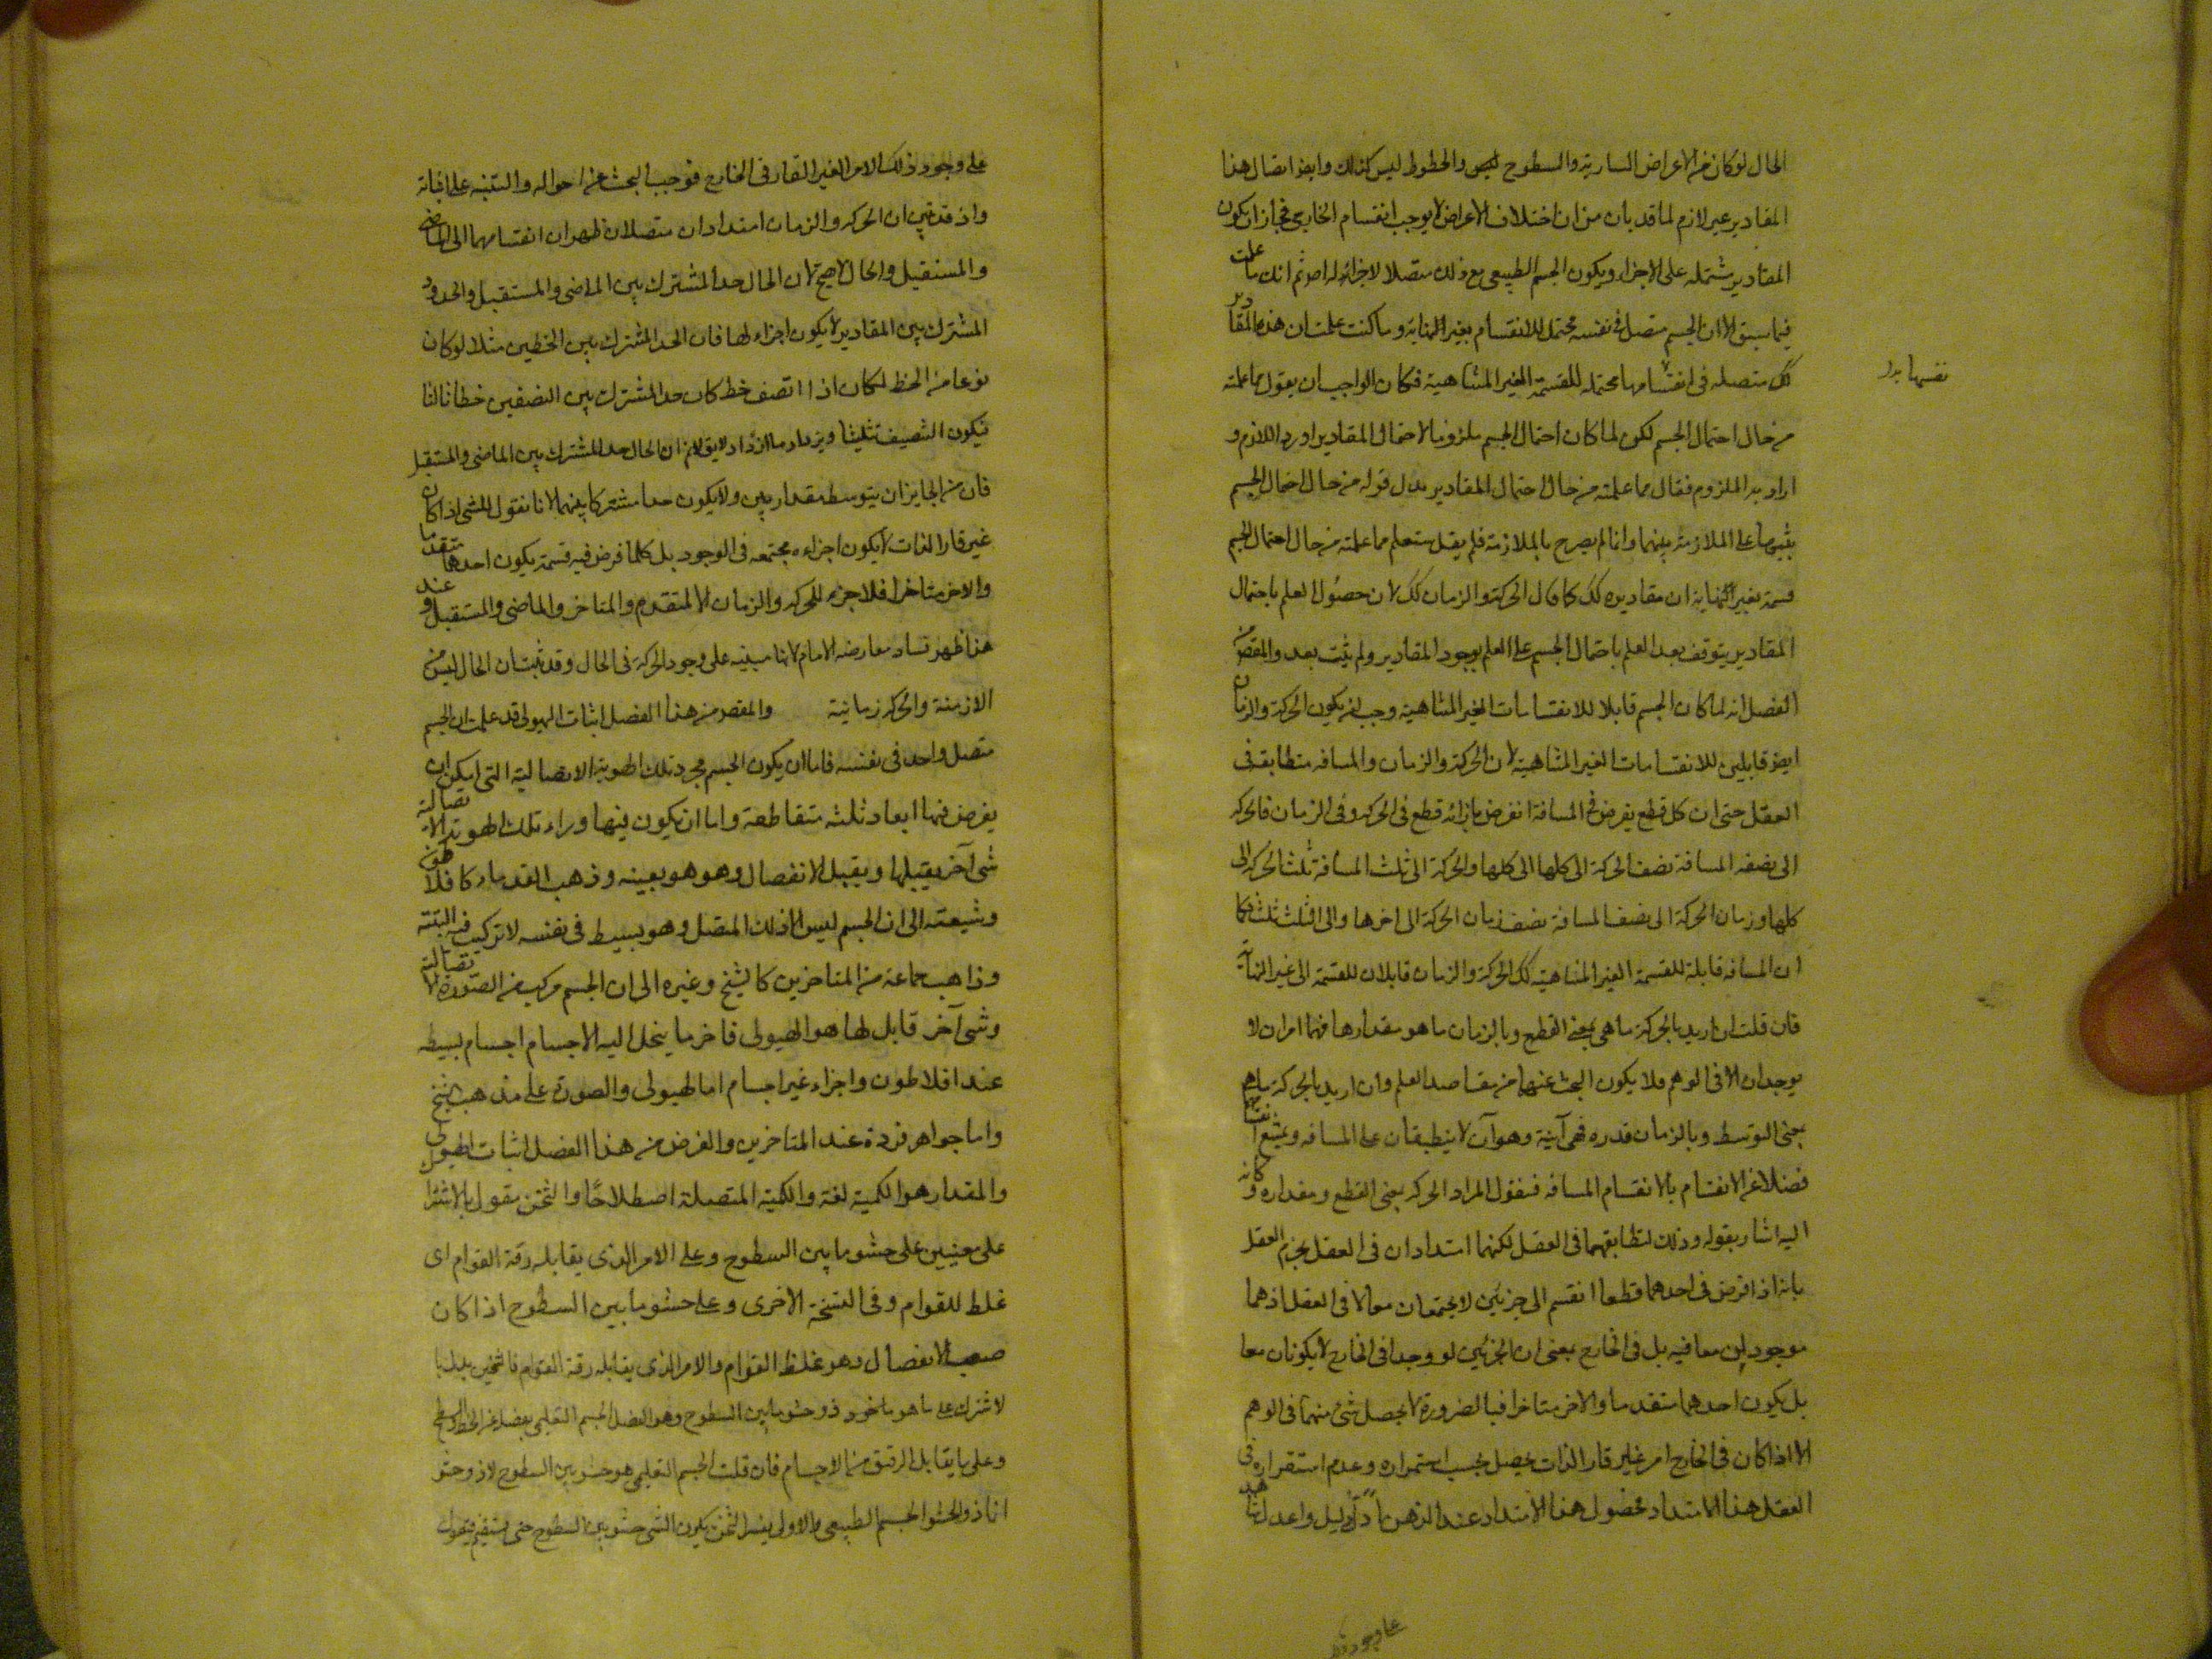 الحال لو كان من الاعراض السارية والسطوح والخطوط ليس كذلك وايضا اتصال هذا
المقادير غير لازم لما قد بان من ان اختلاف الاعراض لا يوجب انقسام الخارجى فجاز ان يكون
المقادير مشتمله على الاجزاء ويكون الجسم الطبيعى مع ذلك متصلا لا جزء له ثم انك ما علمت
فيما سبق الا ان الجسم متصل فى نفسه محتمل للانقسام بغير النهاية وما كنت علمت ان هذه المقادير
كك متصله فى انقسامها محتمله للقسمة الغير المتناهية فكان الواجب ان يقول مما علمته
نفسها بدل
من حال احتمال الجسم لكن لما كان احتمال الجسم ملزوما لاحتمال المقادير اورد اللازم و
اراد به الملزوم فقال مما علمته من حال احتمال المقادير بدل قوله من حال احتمال الجسم
تنبيها على الملازمة بينهما وانما لم يصرح بالملازمة فلم يقل ستعلم مما علمته من حال احتمال الجسم
قسمة بغير النهاية ان مقاديره كك كما قال الحركة والزمان كك لان حصول العلم باحتمال
المقادير يتوقف بعد العلم باحتمال الجسم على العلم بوجود المقادير ولم يثبت بعد والمقص من
الفصل انه لما كان الجسم قابلا للانقسامات الغير المتناهية وجب ان يكون الحركة والزمان
ايضا قابلين للانقسامات الغير المتناهية لان الحركة والزمان والمسافه متطابقة فى
العقل حتى ان كل قطع يفرض فى المسافة انفرض بازائه قطع فى الحركه وفى الزمان فالحركه
الى نصف المسافة نصف الحركة الى كلها والحركة الى ثلث المسافة ثلث الحركه الى
كلها وزمان الحركة الى نصف المسافة نصف زمان الحركة الى اخرها والى الثلث ثلث فكما
ان المسافه قابلة للقسمة الغير المتناهية كك الحركة والزمان قابلان للقسمة الى غير النهاية
فان قلت ان اريد بالحركة ما هى بمعنى القطع وبالزمان ما هو مقدارها فهما امران لا
يوجدان الا فى الوهم فلا يكون البحث عنهما من مقاصد العلم وان اريد بالحركة ما هى
بمعنى التوسط وبالزمان قدره فهى آنية وهو آن لا ينطبقان على المسافه ويمتنع انقسامهما
فضلا عن الانقسام بالانقسام المسافه فنقول المراد الحركه بمعنى القطع ومقداره وكانه
اليه اشار بقوله وذلك لتطابقهما فى العقل لكنهما امتدادان فى العقل يجزم العقل
بانه اذا فرض فى احدهما قطعا انقسم الى جزئين لا يجتمعان معا لا فى العقل اذ هما
موجودين معا فيه بل فى الخارج بمعنى ان الجزئين لو وجدا فى الخارج لا يكونان معا
بل يكون احدهما متقدما والاخر متاخرا فبالضرورة لا يحصل شئ منهما فى الوهم
الا اذا كان فى الخارج امر غير قار الذات يحصل بحسب استمراره وعدم استقراره فى
العقل هذا الامتداد فحصول هذا الامتداد عند الذهن دليل واعدل شاهد
على وجود ذلك
على وجود ذلك الامر الغير القار فى الخارج فوجب البحث عن احواله والتنبيه على اثباته
واذ قد تبين ان الحركه والزمان امتدادان متصلان ظهر ان انقسامهما الى الماضى
والمستقبل والحال لا يصح لان الحال حد المشترك بين الماضى والمستقبل والحدود
المشترك بين المقادير لا يكون اجزاء لها فان الحد المشترك بين الخطين مثلا لو كان
نوعا من الخط لكان اذا اتصف خط كان حد المشترك بين النصفين خطا ثالثا
فيكون التنصيف تثليثا ويزداد ما ازداد لا يق لانم ان الحال حد المشترك بين الماضى والمستقبل
فان من الجايز ان يتوسط مقدار بين ولا يكون حدا مشتركا بينهما لانا نقول الشئ اذا كان
غير قار الذات لا يكون اجزاءه مجتمعه فى الوجود بل كلما فرض فيه قسمة يكون احدهما متقدما
والاخر متاخرا فلا جزء للحركه والزمان الا المتقدم والمتاخر والماضى والمستقبل وعند
هذا ظهر فساد معارضه الامام لانها مبنيه على وجود الحركة فى الحال وقد ثبت ان الحال ليس من
الازمنة والحركه زمانية والمقصود من هذا الفصل اثبات الهيولى قد علمت ان الجسم
متصل واحد فى نفسه فاما ان يكون الجسم مجرد تلك الهوية الاتصالية التى امكن ان
يفرض فيها ابعاد ثلثه متقاطعة واما ان يكون فيها وراء تلك الهوية الاتصالية
شئ آخر يقبلها ويقبل الانفصال وهو هو بعينه وذهب القدماء كافلاطون
وشيعته الى ان الجسم ليس الا ذلك المتصل وهو بسيط فى نفسه لا تركيب فيه البتة
وذاهب جماعة من المتاخرين كالشيخ وغيره الى ان الجسم مركب من الصورة الاتصالية
وشئ آخر قابل لها هو الهيولى فاخر ما ينحل اليه الاجسام اجسام بسيطه
عند افلاطون واجزاء غير اجسام اما الهيولى والصورة على مذهب الشيخ
واما جواهر فردة عند المتاخرين والغرض من هذا الفصل اثبات الهيولى
والمقدار هو الكمية لغة والكمية المتصلة اصطلاحا والثخن مقول بالاشتراك
على معنيين على حشو ما بين السطوح وعلى الامر الذى يقابله رقة القوام اى
غلط للقوام وفى النسخة الاخرى وعلى حشو ما بين السطوح اذا كان
صعب الانفصال وهو غلظ القوام والامر الذى يقابله رقة القوام فالثخين يدل با
لاشترك على ما هو ماخوذ ذو حشو ما بين السطوح وهو الفصل الجسم التعليمى يفصله عن الخط والسطح
وعلى ما يقابل الرقيق من الاجسام فان قلت الجسم التعليمى هو حشو بين السطوح لا ذو حشو
انما ذو الحشو الجسم الطبيعى والاولى يفسر الثخن بكون الشئ حشو بين السطوح حتى يستقيم فنقول